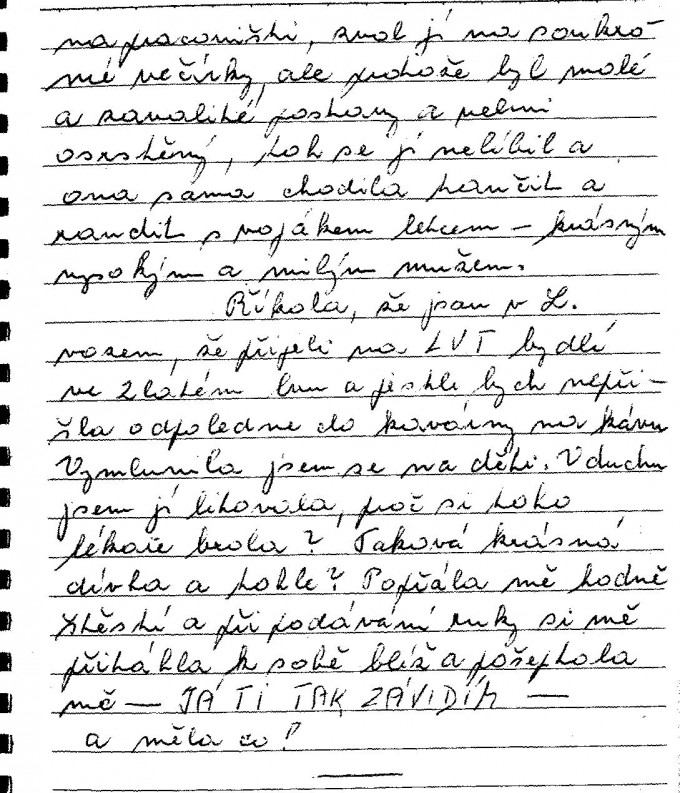 na pracovišti, zval jí na soukro-
mé večírky, ale protože byl malé
a zavalité postavy a velmi
osrstěný, tak se jí nelíbil a
ona sama chodila tančit a
randit s vojákem letcem – krásným
vysokým a milým mužem.
Říkala, že jsou v L.
vozem, že přijeli na LVT bydlí
ve Zlatém lvu a jestli bych nepři-
šla odpoledne do kavárny na kávu
Vymluvila jsem se na děti. V duchu
jsem jí litovala, proč si toho
lékaře brala? Taková krásná
dívka a tohle? Popřála mě hodně
štěstí a při podávání ruky si mě
přitáhla k sobě blíž a pošeptala
mě – JÁ TI TAK ZÁVIDÍM –
a měla co!